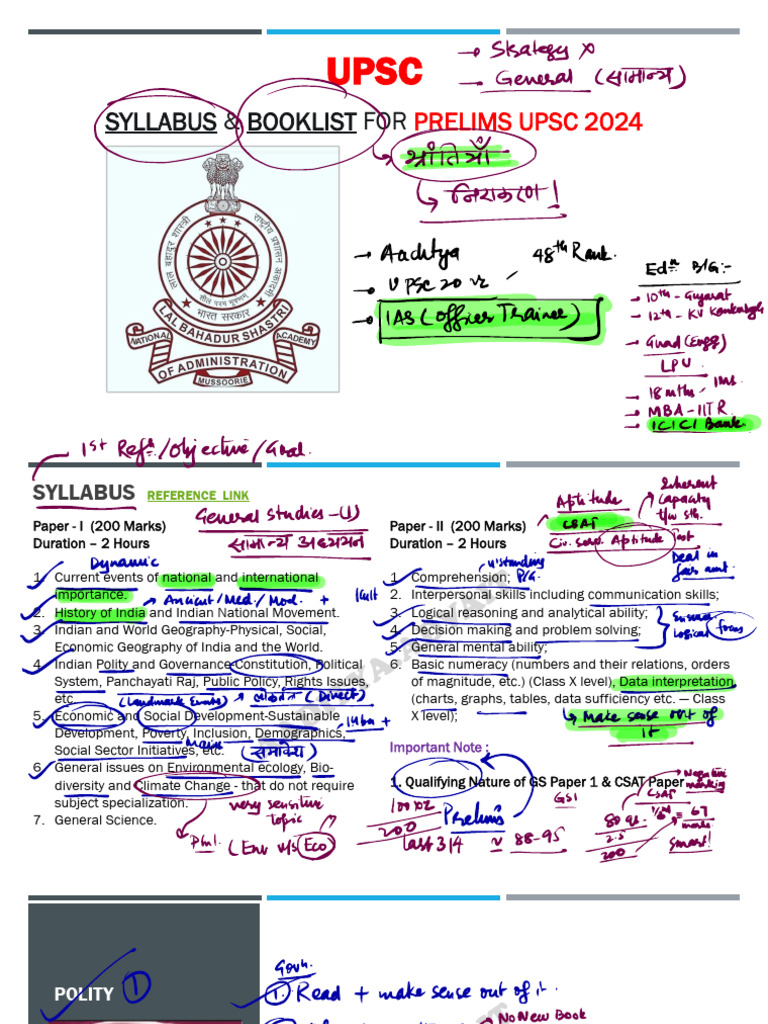 UPSC
→ Strategy x
→ General (सामान्य)
SYLLABUS & BOOKLIST FOR PRELIMS UPSC 2024
भ्रांतियाँ
निराकरण!
लाल बहादुर शास्त्री राष्ट्रीय प्रशासन अकादमी
सत्यमेव जयते
शीलं परम भूषणम्
भारत सरकार
LAL BAHADUR SHASTRI
NATIONAL ACADEMY
OF ADMINISTRATION
MUSSOORIE
→ Aaditya 48th Rank.
→ UPSC 20
→ IAS (Officer Trainee)
Edn B/G:-
→ 10th - Gujarat
→ 12th - KV
→ Guad (Engg)
LPU
→ 18 mths
→ MBA-IITR
→ ICICI Bank
1st Refn/Objective/Goal.
SYLLABUS REFERENCE LINK
General Studies-(1)
सामान्य अध्ययन
Paper - I (200 Marks)
Duration – 2 Hours
Dynamic
1. Current events of national and international
importance. → Ancient/Med./Mod. + Kult
2. History of India and Indian National Movement.
3. Indian and World Geography-Physical, Social,
Economic Geography of India and the World.
4. Indian Polity and Governance-Constitution, Political
System, Panchayati Raj, Public Policy, Rights Issues,
etc (Landmark Events) (Direct)
5. Economic and Social Development-Sustainable
Development, Poverty, Inclusion, Demographics,
Social Sector Initiatives, etc. (समावेश)
6. General issues on Environmental ecology, Bio-
diversity and Climate Change - that do not require
subject specialization. very sensitive
7. General Science. topic
(Env v/s Eco)
Aptitude
CSAT
Inherent
capacity
Civ. Serv. Aptitude Test
Paper - II (200 Marks)
Duration – 2 Hours
Deal in
u'standing
1. Comprehension; P/G.
2. Interpersonal skills including communication skills;
3. Logical reasoning and analytical ability;
4. Decision making and problem solving;
Logical focus
5. General mental ability;
6. Basic numeracy (numbers and their relations, orders
of magnitude, etc.) (Class X level), Data interpretation
(charts, graphs, tables, data sufficiency etc. — Class
X level);
→ Make sense out of
it
Important Note :
1. Qualifying Nature of GS Paper 1 & CSAT Paper
Negative
marking
100x2
200
Prelims
last 3/4 ≈ 88-95
GS1
CSAT
80 qs.
2.5
200
= 67
marks
Smart!
POLITY ①
Govn.
①. Read + make sense out of it.
→ No New Book